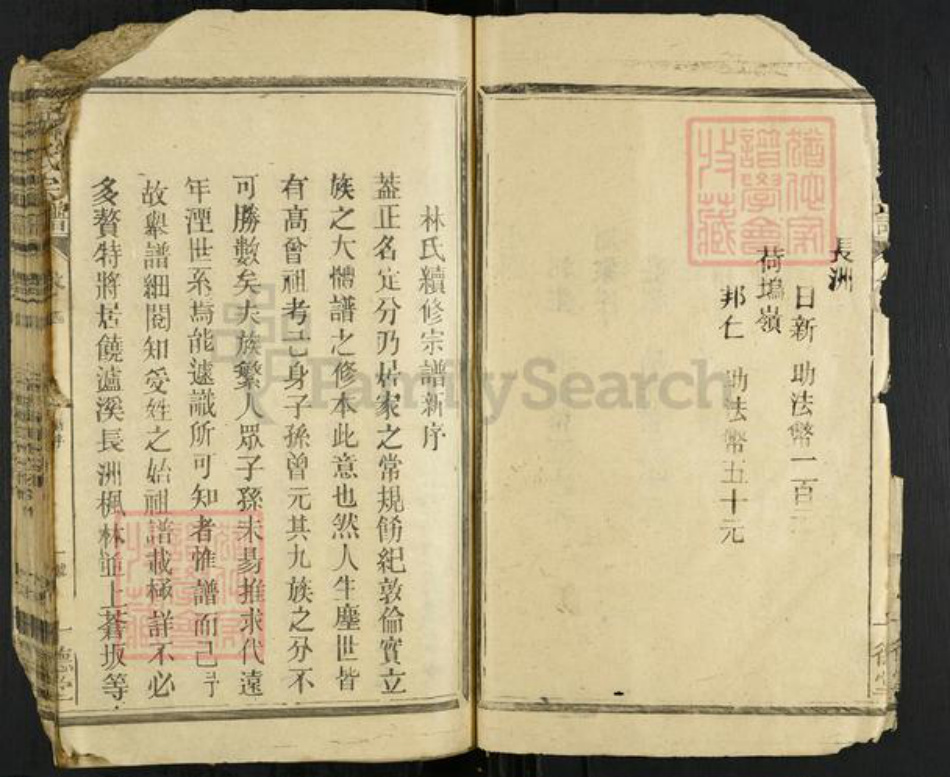 長洲
日新 助法幣一百元
荷塢嶺
邦仁 助法幣五十元
林氏續修宗譜新序
蓋正名定分乃居家之常規飭紀敦倫實立
族之大體譜之修本此意也然人生塵世皆
有高曾祖考己身子孫曾元其九族之分不
可勝數矣夫族繁人眾子孫未易推求代遠
年湮世系焉能遽識所可知者惟譜而已予
故舉譜細閱知受姓之始祖譜載極詳不必
多贅特將居饒瀘溪長洲楓林並上蒼坂等
FamilySearch